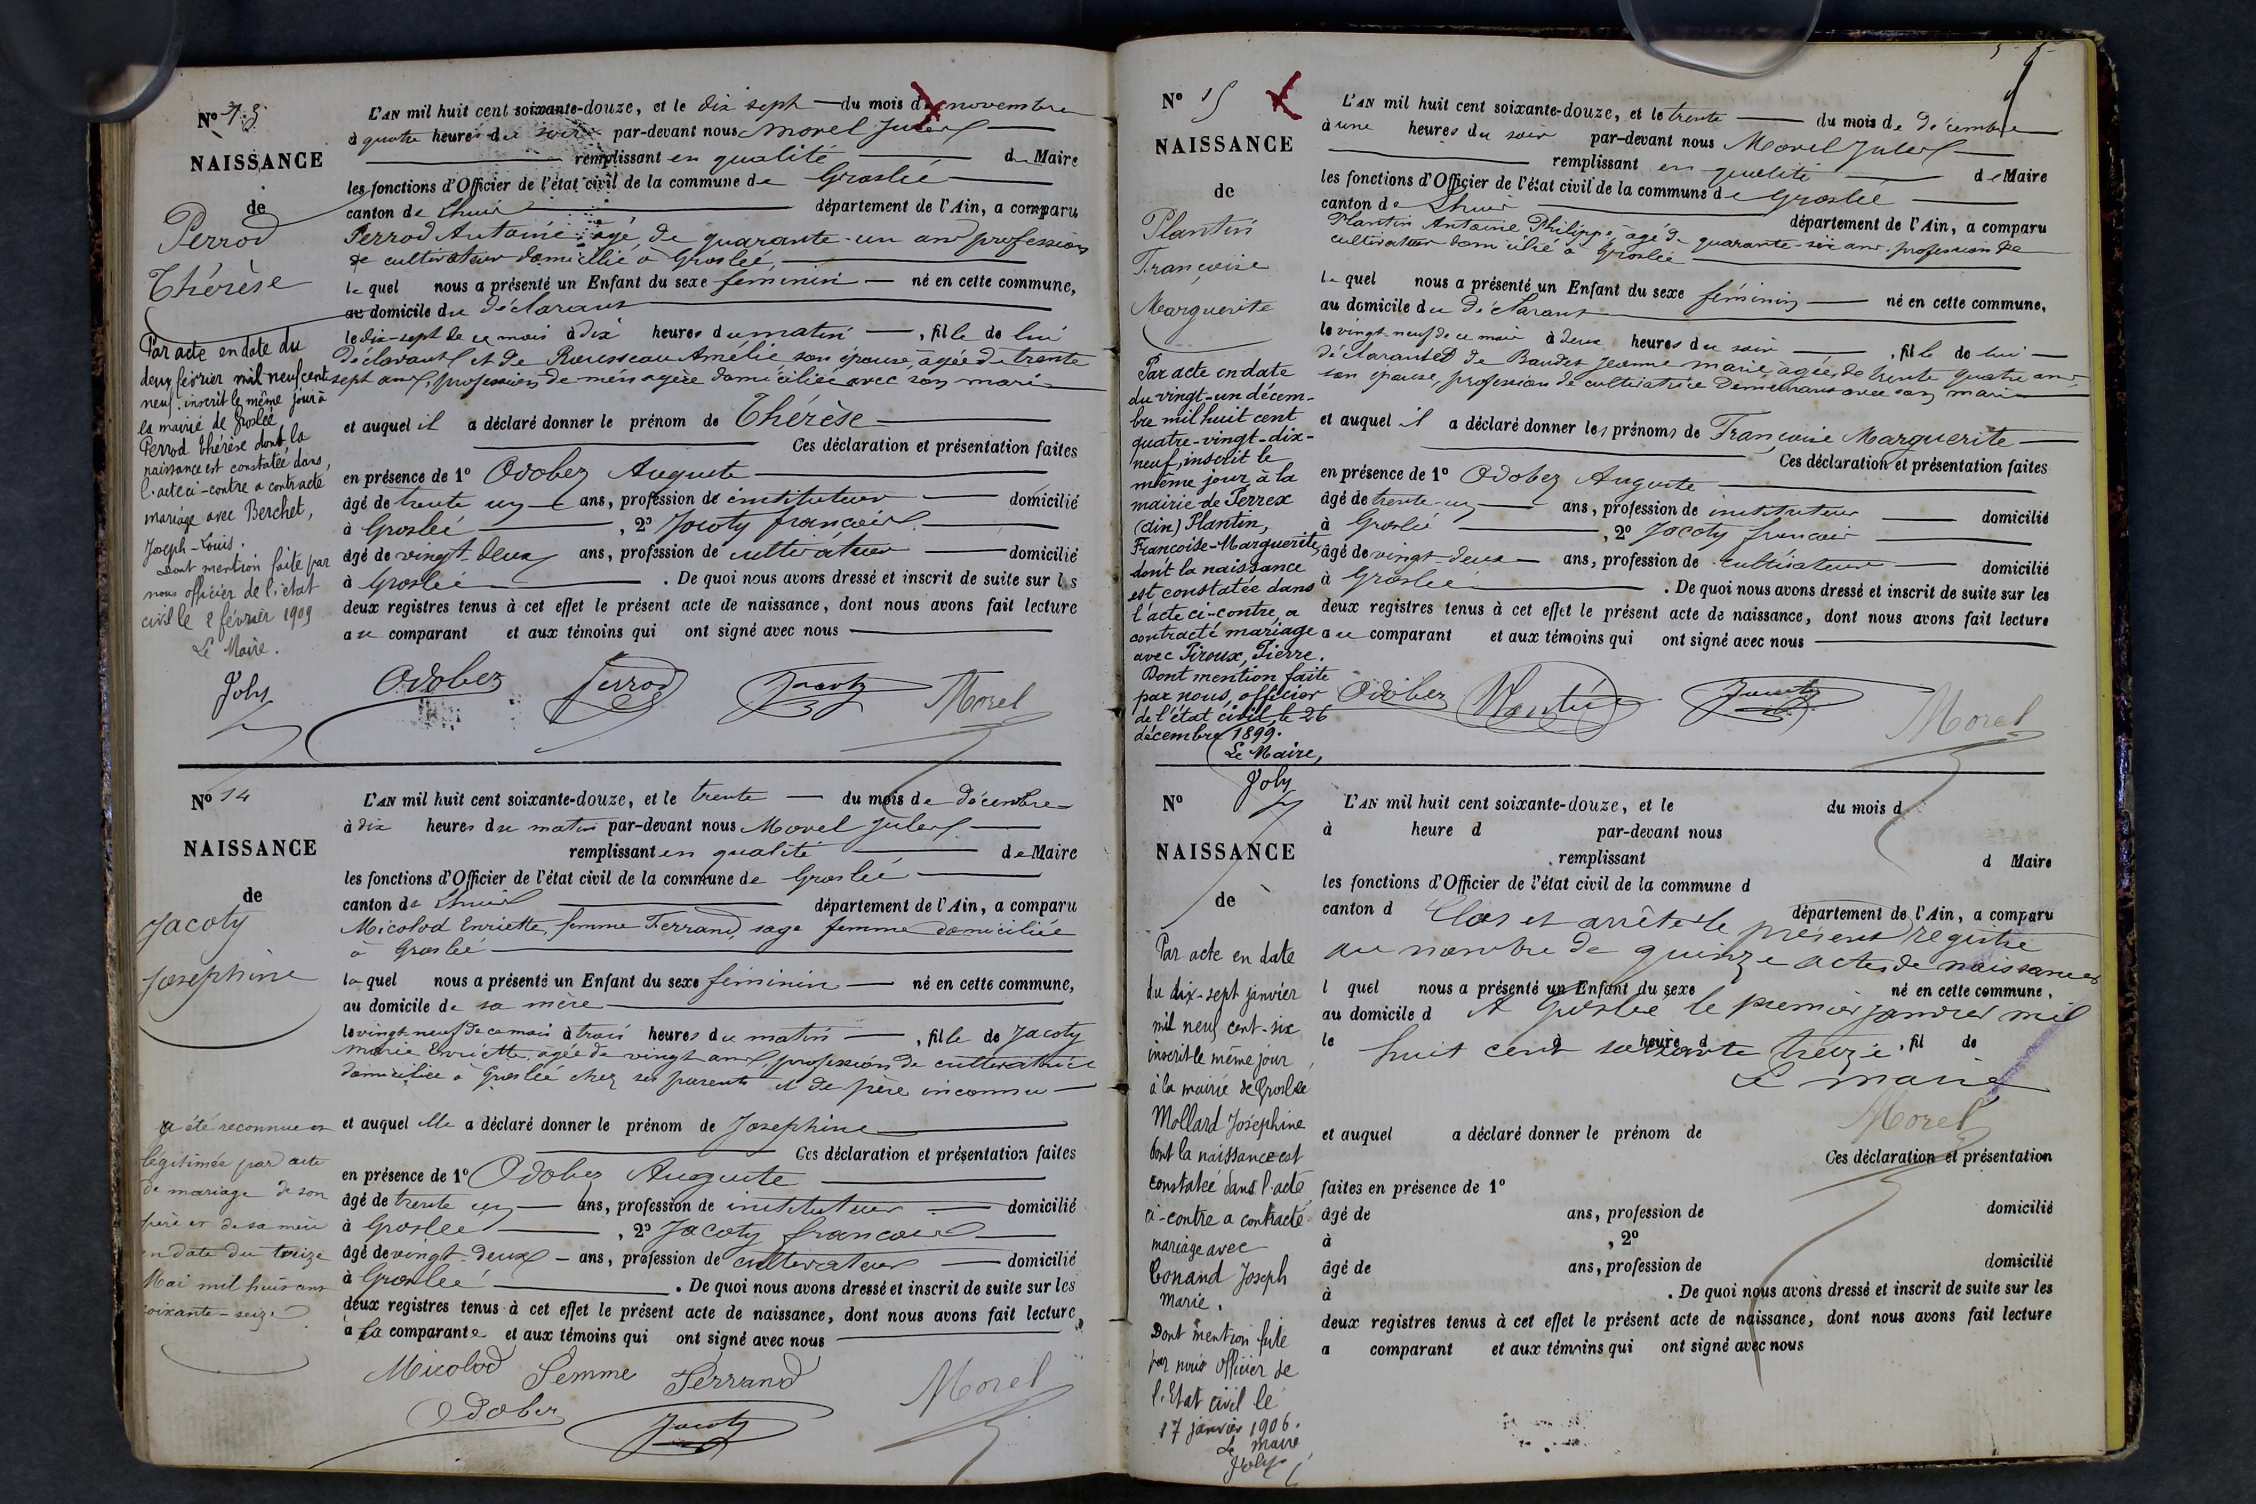 Nº 13
NAISSANCE
de
Perrod
Thérèse
L'AN mil huit cent soixante-douze, et le dix sept du mois de novembre
à quatre heures du soir par-devant nous Morel Jules
remplissant en qualité de Maire
les fonctions d'Officier de l'état civil de la commune de Groslée
canton de Lhuis département de l'Ain, a comparu
Perrod Antoine âgé de quarante-un ans profession
de cultivateur domicilié à Groslée
lequel nous a présenté un Enfant du sexe féminin né en cette commune,
au domicile du déclarant
le dix-sept de ce mois à dix heures du matin, fille de lui
déclarant et de Rousseau Amélie son épouse, âgée de trente
sept ans, profession de ménagère domiciliée avec son mari
et auquel il a déclaré donner le prénom de Thérèse
Ces déclaration et présentation faites
en présence de 1º Odobez Auguste
âgé de trente un ans, profession de instituteur domicilié
à Groslée, 2º Jacoty françois
âgé de vingt-deux ans, profession de cultivateur domicilié
à Groslée. De quoi nous avons dressé et inscrit de suite sur les
deux registres tenus à cet effet le présent acte de naissance, dont nous avons fait lecture
au comparant et aux témoins qui ont signé avec nous
Odobez Perrod Jacoty Morel
Par acte en date du
deux février mil neuf cent
neuf. inscrit le même jour à
la mairie de Groslée
Perrod Thérèse dont la
naissance est constatée dans
l'acte ci-contre a contracté
mariage avec Berchet,
Joseph-Louis.
Dont mention faite par
nous officier de l'état
civil le 2 février 1909
Le Maire.
Joly
Nº 14
NAISSANCE
de
Jacoty
Josephine
L'AN mil huit cent soixante-douze, et le trente du mois de décembre
à dix heures du matin par-devant nous Morel Jules
remplissant en qualité de Maire
les fonctions d'Officier de l'état civil de la commune de Groslée
canton de Lhuis département de l'Ain, a comparu
Micolod Enriette, femme Ferrand, sage femme domiciliée
à Groslée
laquel nous a présenté un Enfant du sexe féminin né en cette commune,
au domicile de sa mère
le vingt-neuf de ce mois à trois heures du matin, fille de Jacoty
Marie Enriette, âgée de vingt ans, profession de cultivatrice
domiciliée à Groslée chez ses parents et de père inconnu
et auquel elle a déclaré donner le prénom de Josephine
Ces déclaration et présentation faites
en présence de 1º Odobez Auguste
âgé de trente un ans, profession de instituteur domicilié
à Groslée, 2º Jacoty françois
âgé de vingt-deux ans, profession de cultivateur domicilié
à Groslée. De quoi nous avons dressé et inscrit de suite sur les
deux registres tenus à cet effet le présent acte de naissance, dont nous avons fait lecture
à la comparante et aux témoins qui ont signé avec nous
Micolod Femme Ferrand Morel
Odobez Jacoty
a été reconnue et
légitimée par acte
de mariage de son
père et de sa mère
en date du treize
Mai mil huit cent
soixante-seize
Nº 15
NAISSANCE
de
Plantin
Françoise
Marguerite
L'AN mil huit cent soixante-douze, et le trente du mois de décembre
à une heures du soir par-devant nous Morel Jules
remplissant en qualité de Maire
les fonctions d'Officier de l'état civil de la commune de Groslée
canton de Lhuis département de l'Ain, a comparu
Plantin Antoine Philippe, âgé de quarante-six ans, profession de
cultivateur domicilié à Groslée
lequel nous a présenté un Enfant du sexe féminin né en cette commune,
au domicile du déclarant
le vingt-neuf de ce mois à deux heures du soir, fille de lui
déclarant et de Baudet Jeanne Marie, âgée de trente quatre ans,
son épouse, profession de cultivatrice Demeurant avec son mari
et auquel il a déclaré donner les prénoms de Françoise Marguerite
Ces déclaration et présentation faites
en présence de 1º Odobez Auguste
âgé de trente-un ans, profession de instituteur domicilié
à Groslée, 2º Jacoty françois
âgé de vingt-deux ans, profession de cultivateur domicilié
à Groslée. De quoi nous avons dressé et inscrit de suite sur les
deux registres tenus à cet effet le présent acte de naissance, dont nous avons fait lecture
au comparant et aux témoins qui ont signé avec nous
Odobez Plantin Jacoty Morel
Par acte en date
du vingt-un décem-
bre mil huit cent
quatre-vingt-dix-
neuf, inscrit le
même jour, à la
mairie de Perrex
(Ain) Plantin,
Françoise-Marguerite,
dont la naissance
est constatée dans
l'acte ci-contre, a
contracté mariage
avec Piroux, Pierre.
Dont mention faite
par nous, officier
de l'état civil, le 26
décembre 1899.
Le Maire,
Joly
Nº
NAISSANCE
de
L'AN mil huit cent soixante-douze, et le du mois d
à heure d par-devant nous
remplissant d Maire
les fonctions d'Officier de l'état civil de la commune d
canton d département de l'Ain, a comparu
Clos et arrêté le présent registre
au nombre de quinze actes de naissances
l quel nous a présenté un Enfant du sexe né en cette commune,
au domicile d
A Groslée le premier janvier mil
le à heure d, fil de
huit cent soixante treize
Le maire
Morel
et auquel a déclaré donner le prénom de
Ces déclaration et présentation
faites en présence de 1º
âgé de ans, profession de domicilié
à, 2º
âgé de ans, profession de domicilié
à. De quoi nous avons dressé et inscrit de suite sur les
deux registres tenus à cet effet le présent acte de naissance, dont nous avons fait lecture
a comparant et aux témoins qui ont signé avec nous
Par acte en date
du dix-sept janvier
mil neuf cent-six
inscrit le même jour
à la mairie de Groslée
Mollard Joséphine
dont la naissance est
constatée dans l'acte
ci-contre a contracté
mariage avec
Conand Joseph
Marie.
Dont mention faite
par nous Officier de
l'Etat civil le
17 janvier 1906.
Le Maire
Joly